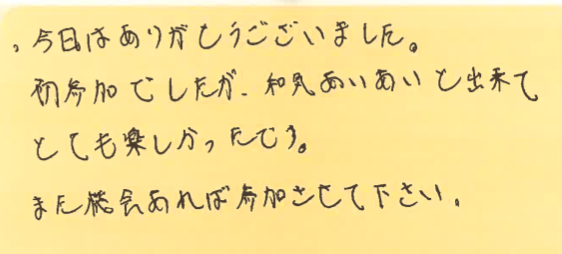 、今日はありがとうございました。
初参加でしたが、和気あいあいと出来て
とても楽しかったです。
また機会あれば参加させて下さい。